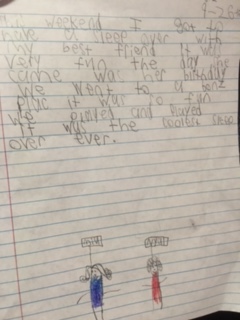 weekend I got to
have a sleep over with
my best friend It was
very fun the day
came was her birthday
We went to a
plac it was so fun
we and played
It was the coolest sleep
over ever.